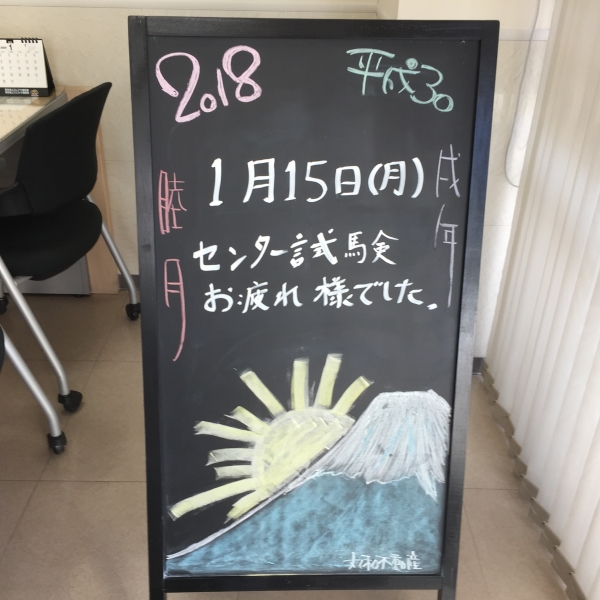 2018
平成30
睦月
戌年
1月15日(月)
センター試験
お疲れ様でした。
大和不動産